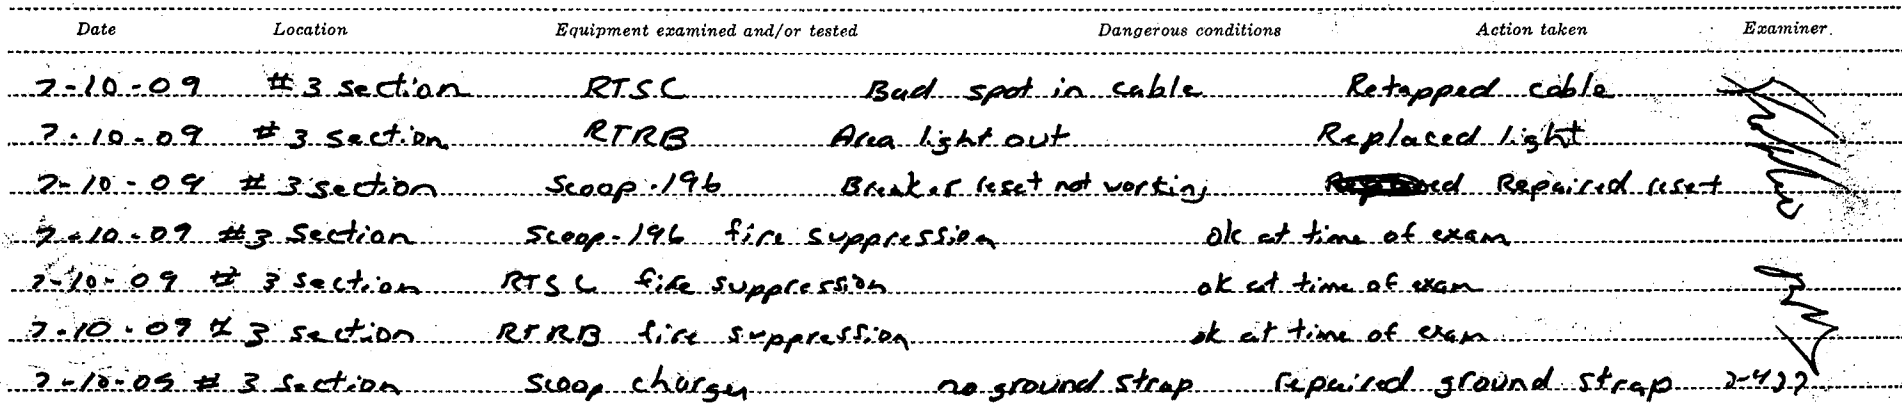 Date Location Equipment examined and/or tested Dangerous conditions Action taken Examiner
7-10-09 #3 section RTSC Bad spot in cable Retapped cable
7-10-09 #3 section RTRB Area light out Replaced light
7-10-09 #3 section Scoop-196 Breaker reset not working Repaired reset
7-10-09 #3 Section Scoop-196 fire suppression ok at time of exam
7-10-09 #3 section RTSC fire suppression ok at time of exam
7-10-09 #3 section RTRB fire suppression ok at time of exam
7-10-09 #3 section Scoop charger no ground strap repaired ground strap